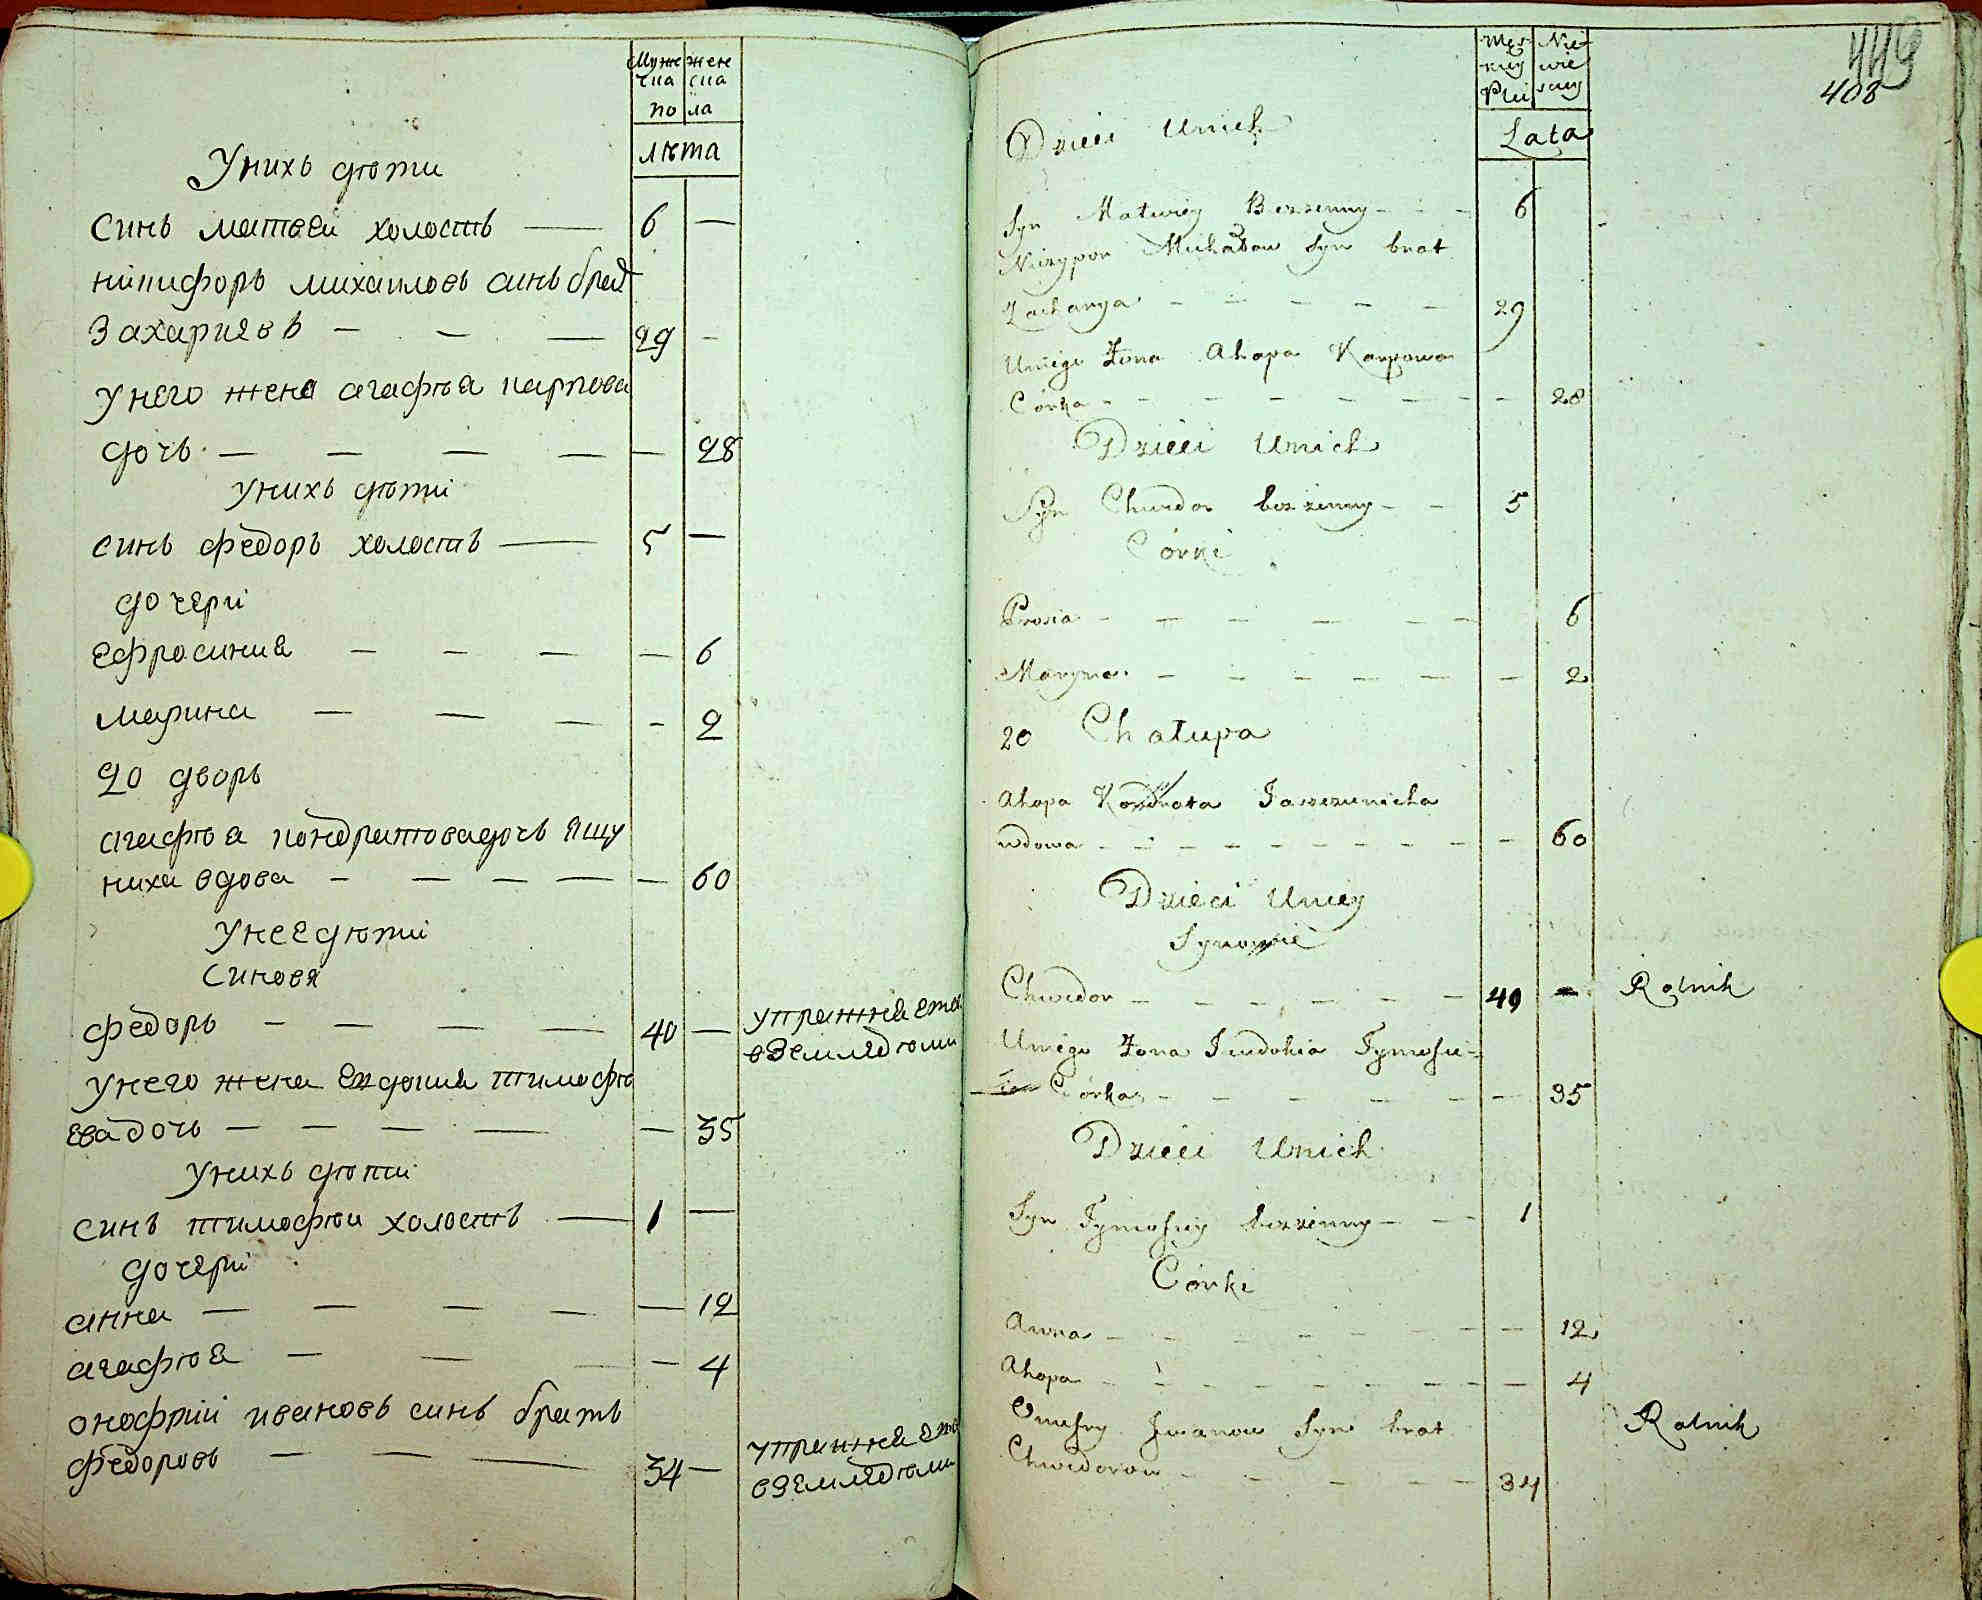 Муже жен
ска ска
по ла
лѣта
Унихъ дѣти
синъ матвей холостъ — 6 —
никифоръ михаиловъ синъ брат
Захариевъ — — — 29 —
Унего жена агафѣя карпова
дочь — — — — — 28
унихъ дѣти
синъ федоръ холостъ — 5 —
дочери
ефросиния — — — — 6
марина — — — — 2
20 дворъ
агафѣя кондратовадочъ Ящу
ниха вдова — — — — — 60
Унеедѣти
синовя
федоръ — — — — 40 — упражняется
вземледѣли
унего жена евдокия тимофѣ
евадочь — — — — — 35
Унихъ дѣти
синъ тимофѣи холостъ — 1 —
дочери
анна — — — — — 12
агафѣя — — — — 4
онофрий ивановъ синъ братъ
федоровъ — — — 34 — упражняется
вземледѣли
449
408
Męz Nie
kiey wie
Płci sciey
Lata
Dzieci Unich
Syn Matwiey Bezzenny - - - 6
Niczypor Michałow Syn brat
Zacharya - - - - - 29
Uniego Zona Ahapa Karpowa
Córka - - - - - - - - 28
Dzieci Unich
Syn Chwedor bezzenny - - 5
Córki
Prosia - - - - - - 6
Maryna - - - - - - - 2
20 Chałupa
Ahapa Kondrata Jaszczunicha
wdowa - - - - - - - - - 60
Dzieci Uniey
Synowie
Chwedor - - - - - - 40 - Rolnik
Uniego Zona Jewdokia Tymofie-
Córka - - - - - - 35
Dzieci Unich
Syn Tymofiey bezzenny - - 1
Córki
Anna - - - - - - - - 12
Ahopa - - - - - - - - - 4
Onufry Jwanow Syn brat Rolnik
Chwedorow - - - - - 34